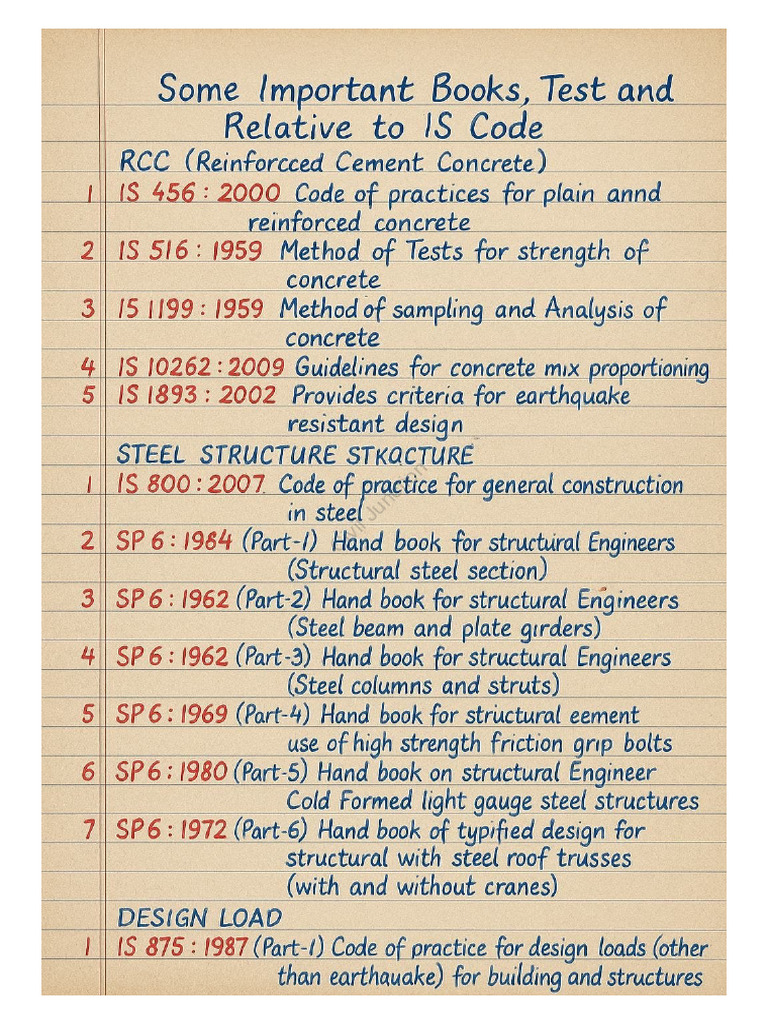 Some Important Books, Test and
Relative to IS Code
RCC (Reinforcced Cement Concrete)
1 IS 456 : 2000 Code of practices for plain annd
reinforced concrete
2 IS 516 : 1959 Method of Tests for strength of
concrete
3 I5 1199 : 1959 Method of sampling and Analysis of
concrete
4 IS 10262 : 2009 Guidelines for concrete mıx proportioning
5 IS 1893 : 2002 Provides criteria for earthquake
resistant design
STEEL STRUCTURE STKACTURE
1 IS 800 : 2007. Code of practice for general construction
in steel
2 SP 6 : 1984 (Part-1) Hand book for structural Engineers
(Structural steel section)
3 SP 6 : 1962 (Part-2) Hand book for structural Engineers
(Steel beam and plate gırders)
4 SP 6 : 1962 (Part-3) Hand book for structural Engineers
(Steel columns and struts)
5 SP 6 : 1969 (Part-4) Hand book for structural eement
use of high strength friction grıp bolts
6 SP 6 : 1980 (Part-5) Hand book on structural Engineer
Cold Formed light gauge steel structures
7 SP 6 : 1972 (Part-6) Hand book of typified design for
structural with steel roof trusses
(with and without cranes)
DESIGN LOAD
1 IS 875 : 1987 (Part-1) Code of practice for design loads (other
than earthauake) for building and structures